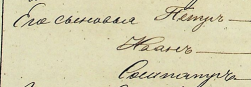 Его сыновья Петръ
Иванъ